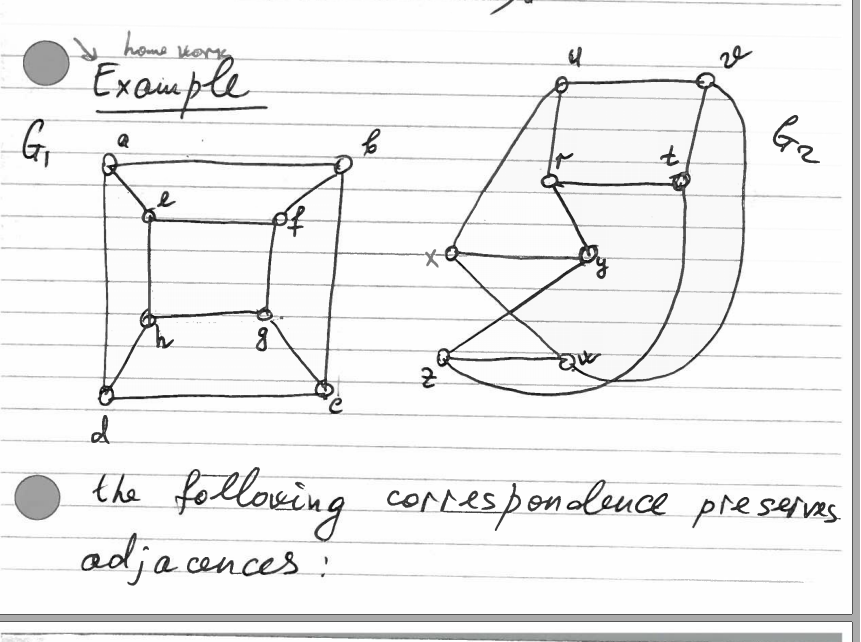 home work
Example
u v
G₁ a b r t G₂
e f
x y
h g
z w
d c
the following correspondence preserves
adjacences :